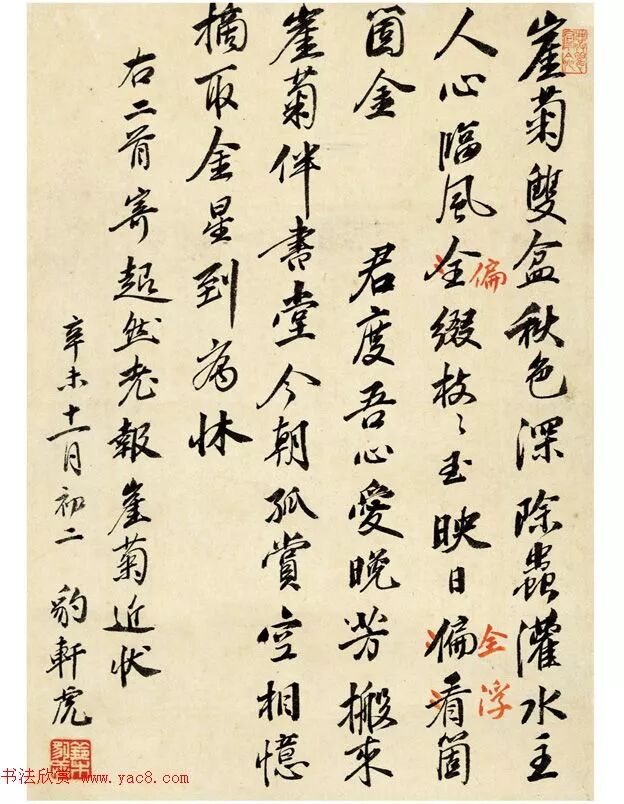 崖菊雙盆秋色深除蟲灌水主
人心臨風全綴枝〻玉映日偏看箇
偏
全浮
箇金　君度吾心愛晚芳搬來
崖菊伴書堂今朝孤賞空相憶
摘取金星到病牀
右二首寄超然老報崖菊近狀
辛未十一月初二　豹軒虎
书法欣赏 www.yac8.com